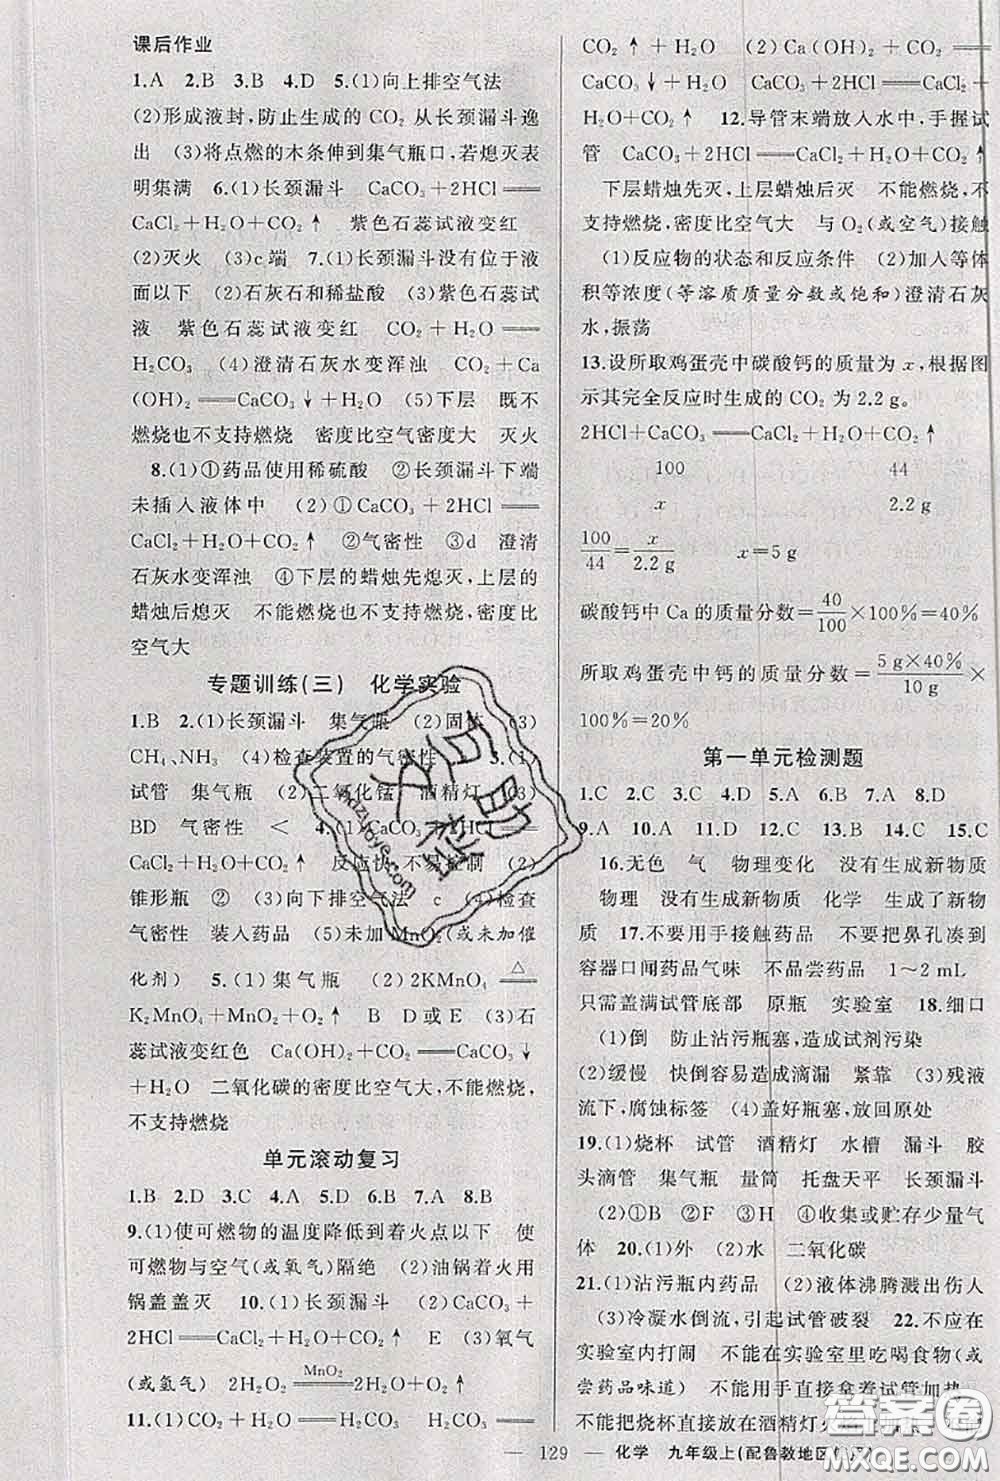 课后作业
1.A 2.B 3.B 4.D 5.(1)向上排空气法
(2)形成液封,防止生成的CO₂从长颈漏斗逸
出 (3)将点燃的木条伸到集气瓶口,若熄灭表
明集满 6.(1)长颈漏斗 CaCO₃+2HCl══
CaCl₂+H₂O+CO₂↑ 紫色石蕊试液变红
(2)灭火 (3)c端 7.(1)长颈漏斗没有位于液
面以下 (2)石灰石和稀盐酸 (3)紫色石蕊试
液 紫色石蕊试液变红 CO₂+H₂O══
H₂CO₃ (4)澄清石灰水变浑浊 CO₂+Ca
(OH)₂══CaCO₃↓+H₂O (5)下层 既不
燃烧也不支持燃烧 密度比空气密度大 灭火
8.(1)①药品使用稀硫酸 ②长颈漏斗下端
未插入液体中 (2)①CaCO₃+2HCl══
CaCl₂+H₂O+CO₂↑ ②气密性 ③d 澄清
石灰水变浑浊 ④下层的蜡烛先熄灭,上层的
蜡烛后熄灭 不能燃烧也不支持燃烧,密度比
空气大
专题训练(三) 化学实验
1.B 2.(1)长颈漏斗 集气瓶 (2)固体 (3)
CH₄、NH₃ (4)检查装置的气密性 3.(1)
试管 集气瓶 (2)二氧化锰 酒精灯
BD 气密性 < 4.(1)CaCO₃+2HCl══
CaCl₂+H₂O+CO₂↑ 反应快,不易控制 (2)
锥形瓶 ② (3)向下排空气法 c (4)检查
气密性 装入药品 (5)未加MnO₂(或未加催
化剂) 5.(1)集气瓶 (2)2KMnO₄══△
K₂MnO₄+MnO₂+O₂↑ B D或E (3)石
蕊试液变红色 Ca(OH)₂+CO₂══CaCO₃↓
+H₂O 二氧化碳的密度比空气大,不能燃烧,
不支持燃烧
单元滚动复习
1.B 2.D 3.C 4.A 5.D 6.B 7.A 8.B
9.(1)使可燃物的温度降低到着火点以下 使
可燃物与空气(或氧气)隔绝 (2)油锅着火用
锅盖盖灭 10.(1)长颈漏斗 (2)CaCO₃+
2HCl══CaCl₂+H₂O+CO₂↑ E (3)氧气
(或氢气) 2H₂O₂══MnO₂ 2H₂O+O₂↑
11.(1)CO₂+H₂O══H₂CO₃ H₂CO₃══
CO₂↑+H₂O (2)Ca(OH)₂+CO₂══
CaCO₃↓+H₂O CaCO₃+2HCl══CaCl₂+
H₂O+CO₂↑ 12.导管末端放入水中,手握试
管 CaCO₃+2HCl══CaCl₂+H₂O+CO₂↑
下层蜡烛先灭,上层蜡烛后灭 不能燃烧,不
支持燃烧,密度比空气大 与O₂(或空气)接触
(1)反应物的状态和反应条件 (2)加入等体
积等浓度(等溶质质量分数或饱和)澄清石灰
水,振荡
13.设所取鸡蛋壳中碳酸钙的质量为x,根据图
示其完全反应时生成的CO₂为2.2 g。
2HCl+CaCO₃══CaCl₂+H₂O+CO₂↑
100 44
x 2.2 g
100/44=x/2.2 g x=5 g
碳酸钙中Ca的质量分数=40/100×100%=40%
所取鸡蛋壳中钙的质量分数=5 g×40%/10 g×
100%=20%
第一单元检测题
1.C 2.C 3.C 4.D 5.A 6.B 7.A 8.D
9.A 10.A 11.D 12.C 13.B 14.C 15.C
16.无色 气 物理变化 没有生成新物质
物理 没有生成新物质 化学 生成了新物
质 17.不要用手接触药品 不要把鼻孔凑到
容器口闻药品气味 不品尝药品 1~2 mL
只需盖满试管底部 原瓶 实验室 18.细口
(1)倒 防止沾污瓶塞,造成试剂污染
(2)缓慢 快倒容易造成滴漏 紧靠 (3)残液
流下,腐蚀标签 (4)盖好瓶塞,放回原处
19.(1)烧杯 试管 酒精灯 水槽 漏斗 胶
头滴管 集气瓶 量筒 托盘天平 长颈漏斗
(2)①B ②F ③H ④收集或贮存少量气
体 20.(1)外 (2)水 二氧化碳
21.(1)沾污瓶内药品 (2)液体沸腾溅出伤人
(3)冷凝水倒流,引起试管破裂 22.不应在
实验室内打闹 不能在实验室里吃喝食物(或
尝药品味道) 不能用手直接拿着试管加热
不能把烧杯直接放在酒精灯火
— 129 — 化学 九年级上(配鲁教地区